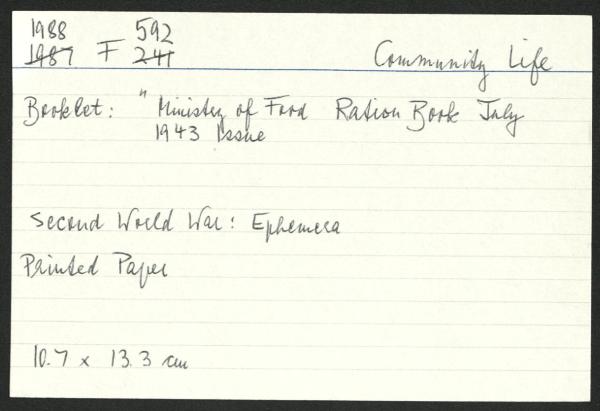 1988 592
1987 F 241 Community Life
Booklet: " Ministry of Food Ration Book July
1943 Issue
Second World War: Ephemera
Printed Paper
10.7 x 13.3 cm